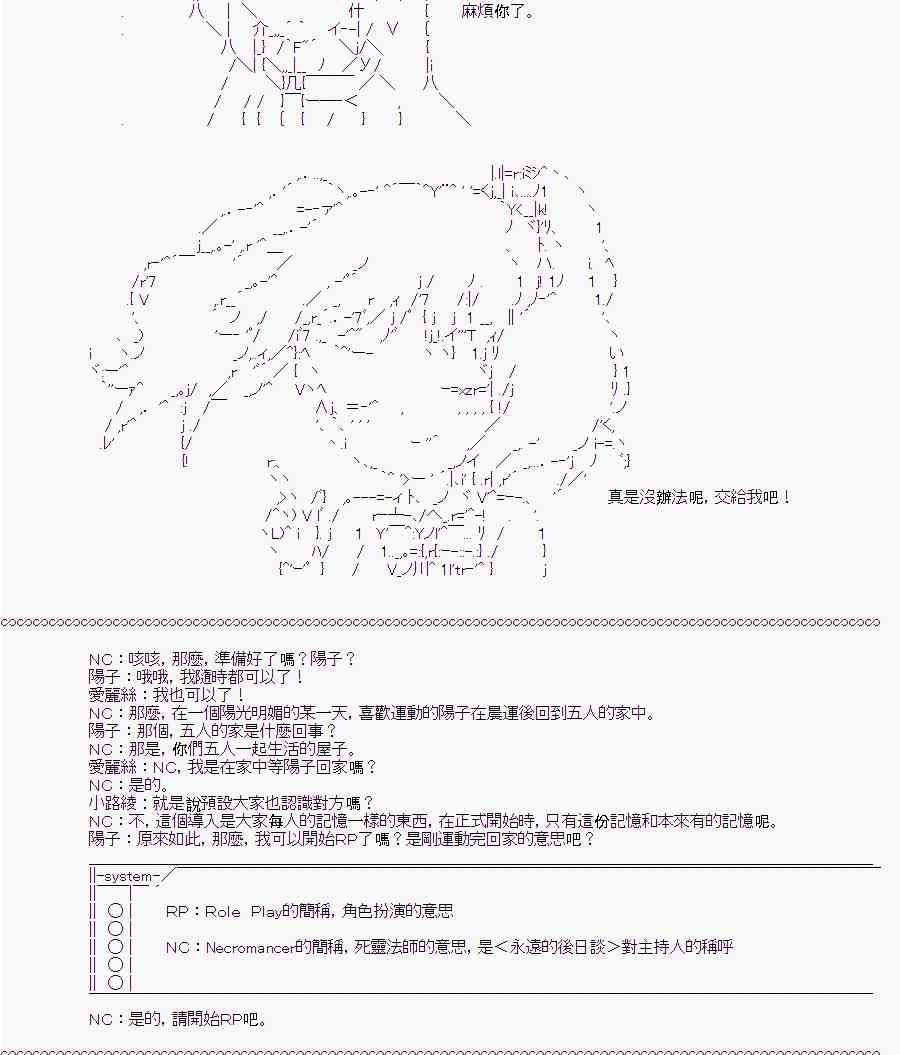 麻煩你了。
真是沒辦法呢, 交給我吧！
NC：咳咳, 那麼, 準備好了嗎？陽子？
陽子：哦哦, 我隨時都可以了！
愛麗絲：我也可以了！
NC：那麼, 在一個陽光明媚的某一天, 喜歡運動的陽子在晨運後回到五人的家中。
陽子：那個, 五人的家是什麼回事？
NC：那是, 你們五人一起生活的屋子。
愛麗絲：NC, 我是在家中等陽子回家嗎？
NC：是的。
小路綾：就是說預設大家也認識對方嗎？
NC：不, 這個導入是大家每人的記憶一樣的東西, 在正式開始時, 只有這份記憶和本來有的記憶呢。
陽子：原來如此, 那麼, 我可以開始RP了嗎？是剛運動完回家的意思吧？
-system-
RP：Role Play的簡稱, 角色扮演的意思
NC：Necromancer的簡稱, 死靈法師的意思, 是＜永遠的後日談＞對主持人的稱呼
NC：是的, 請開始RP吧。